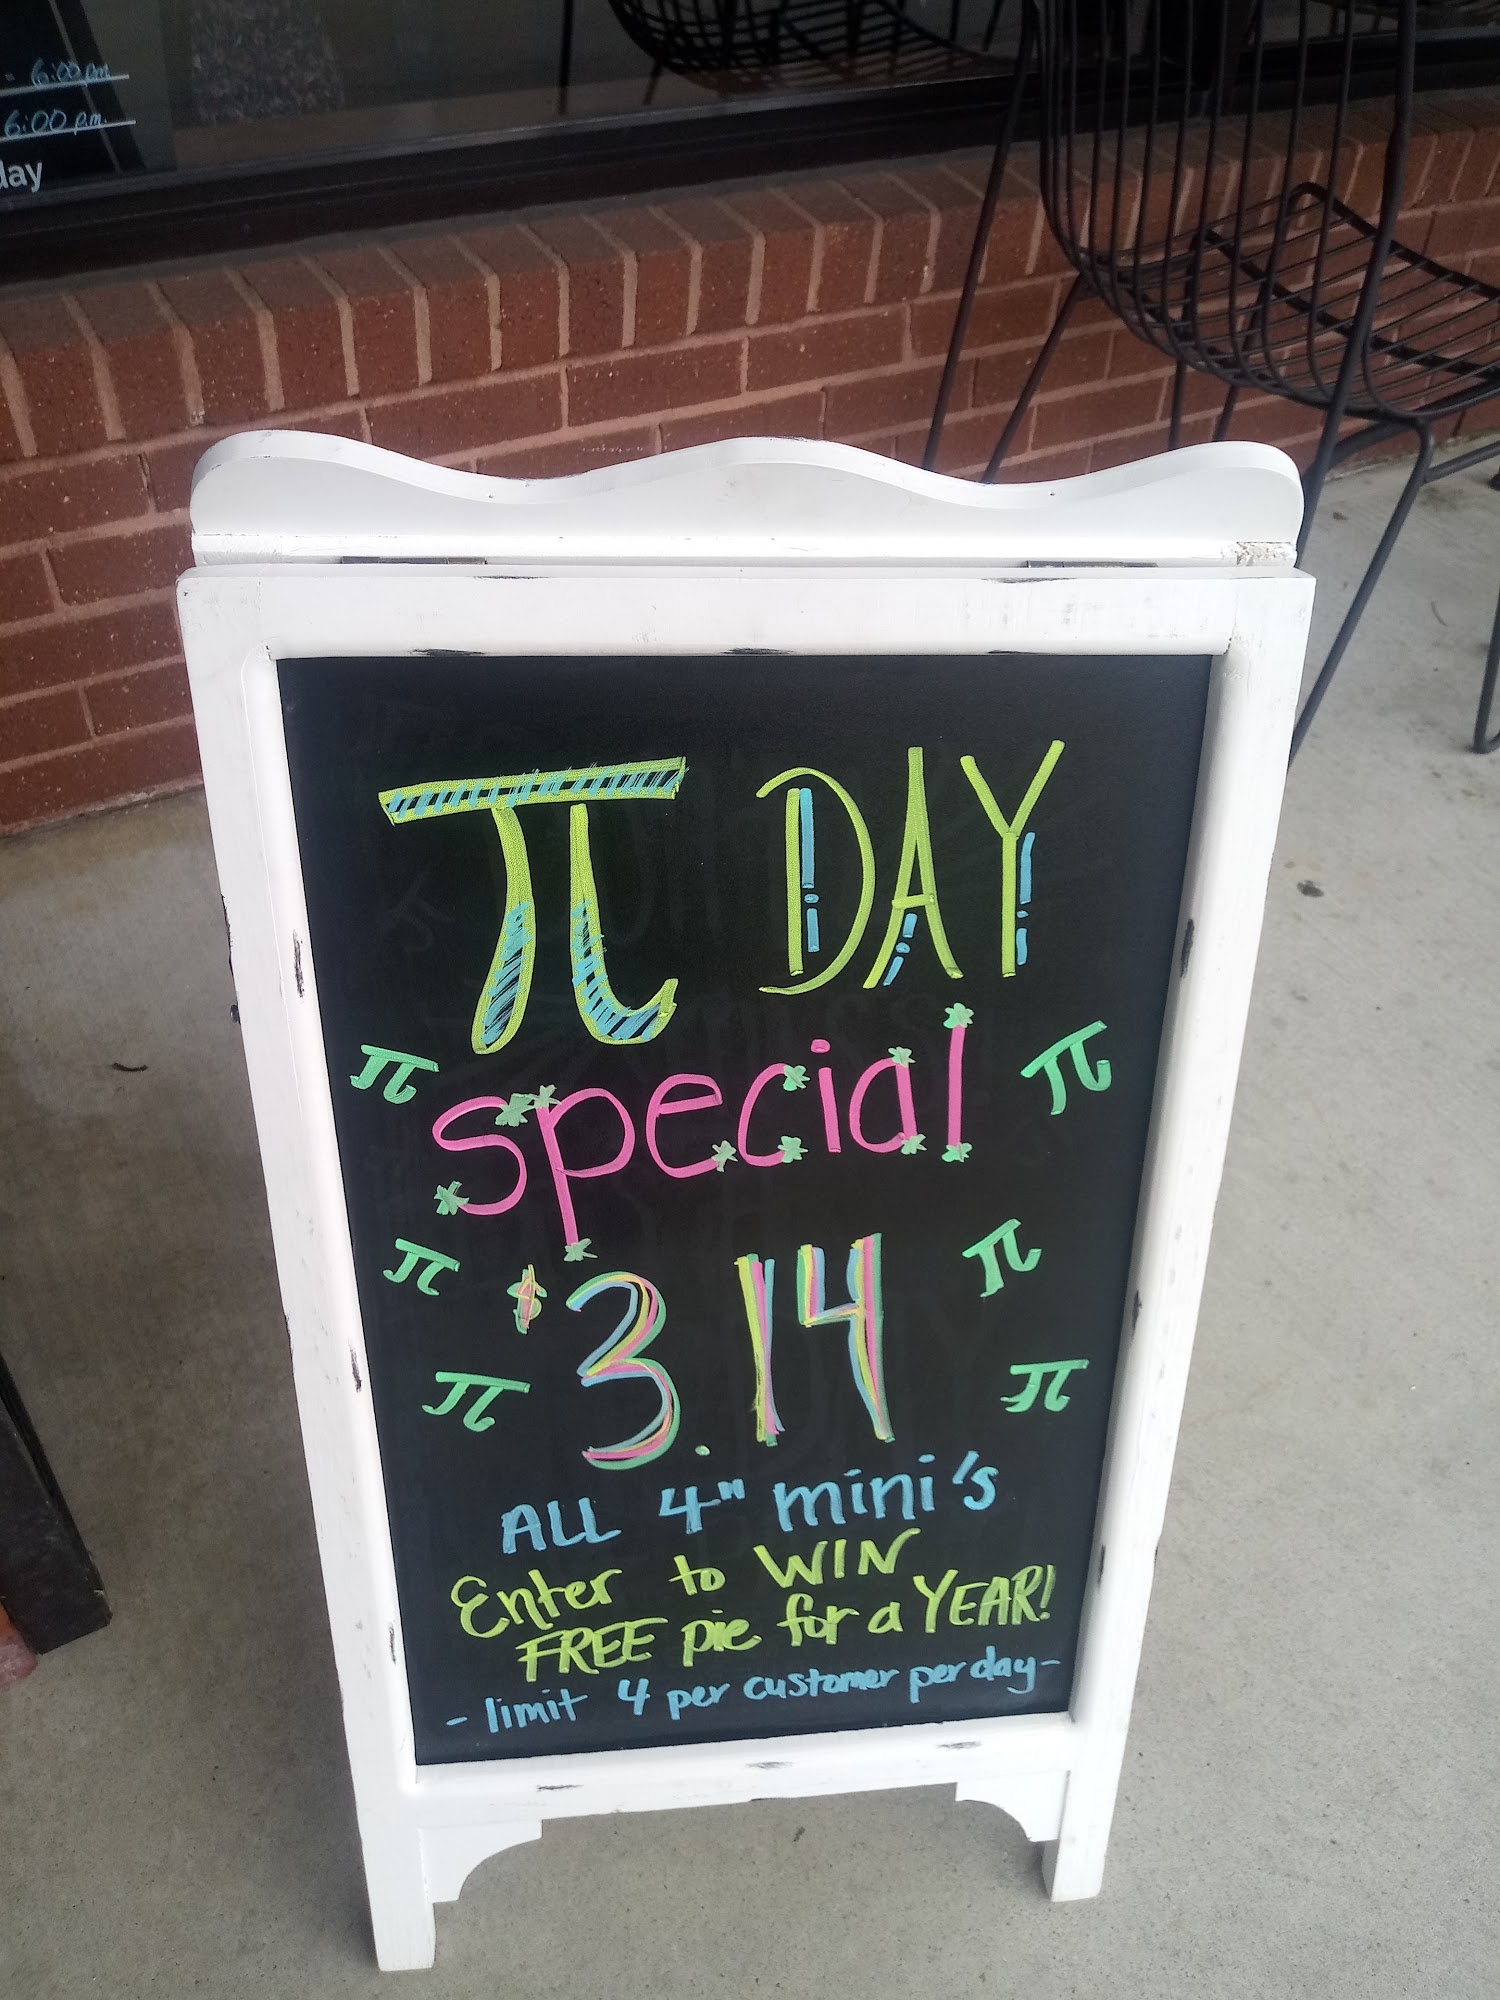 - 6:00 pm
6:00 p.m.
day
π DAY
special
π
π
$3.14
π
π
π
π
ALL 4" mini's
Enter to WIN
FREE pie for a YEAR!
- limit 4 per customer per day -